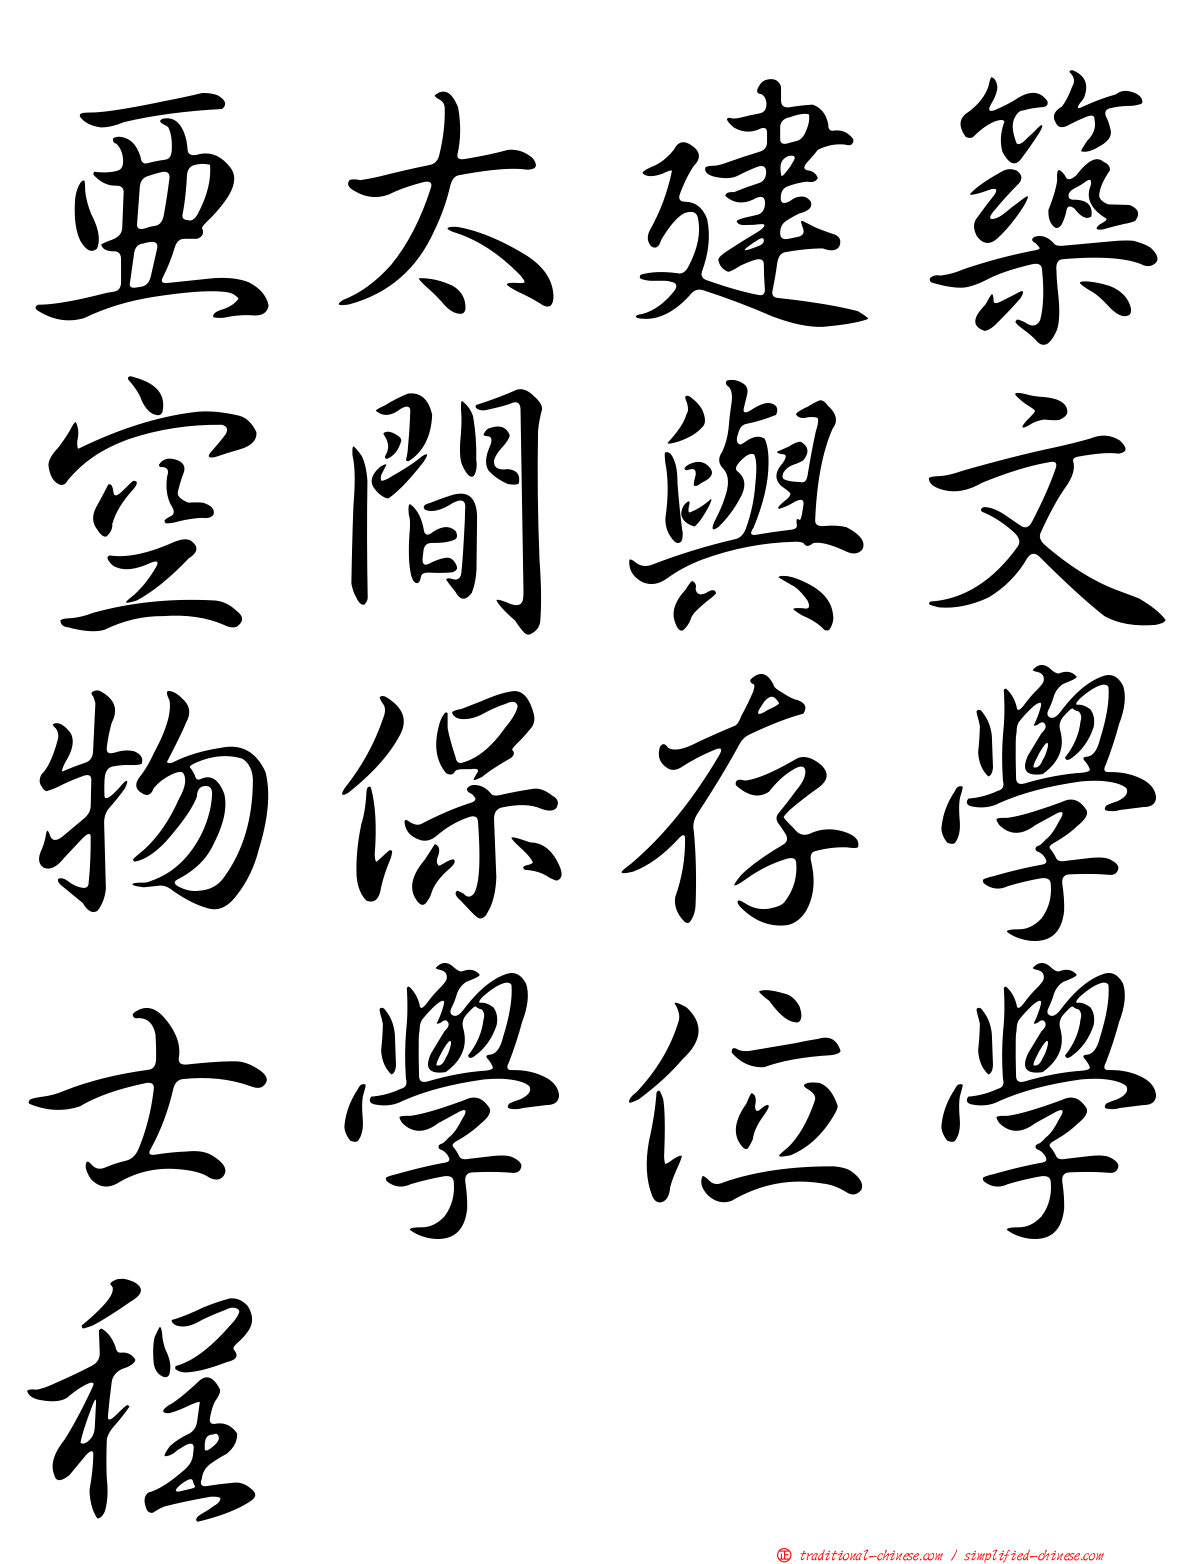 亞太建築
空間與文
物保存學
士學位學
程
正 traditional-chinese.com / simplified-chinese.com